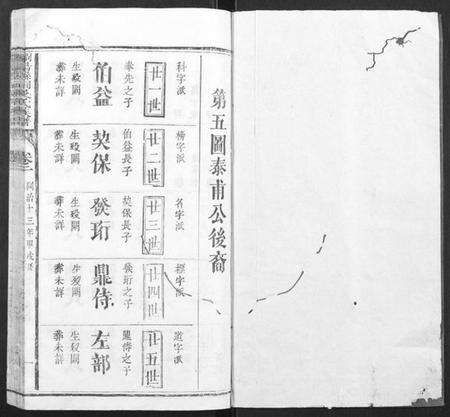 第五圖泰甫公後裔
科字派
廿一世
奉先之子
伯益
生歿闕
葬未詳
楊字派
廿二世
伯益長子
契保
生歿闕
葬未詳
名字派
廿三世
契保長子
發珩
生歿闕
葬未詳
經字派
廿四世
發珩之子
鼎侍
生歿闕
葬未詳
道字派
廿五世
鼎侍之子
左部
生歿闕
葬未詳
同治十三年甲戌